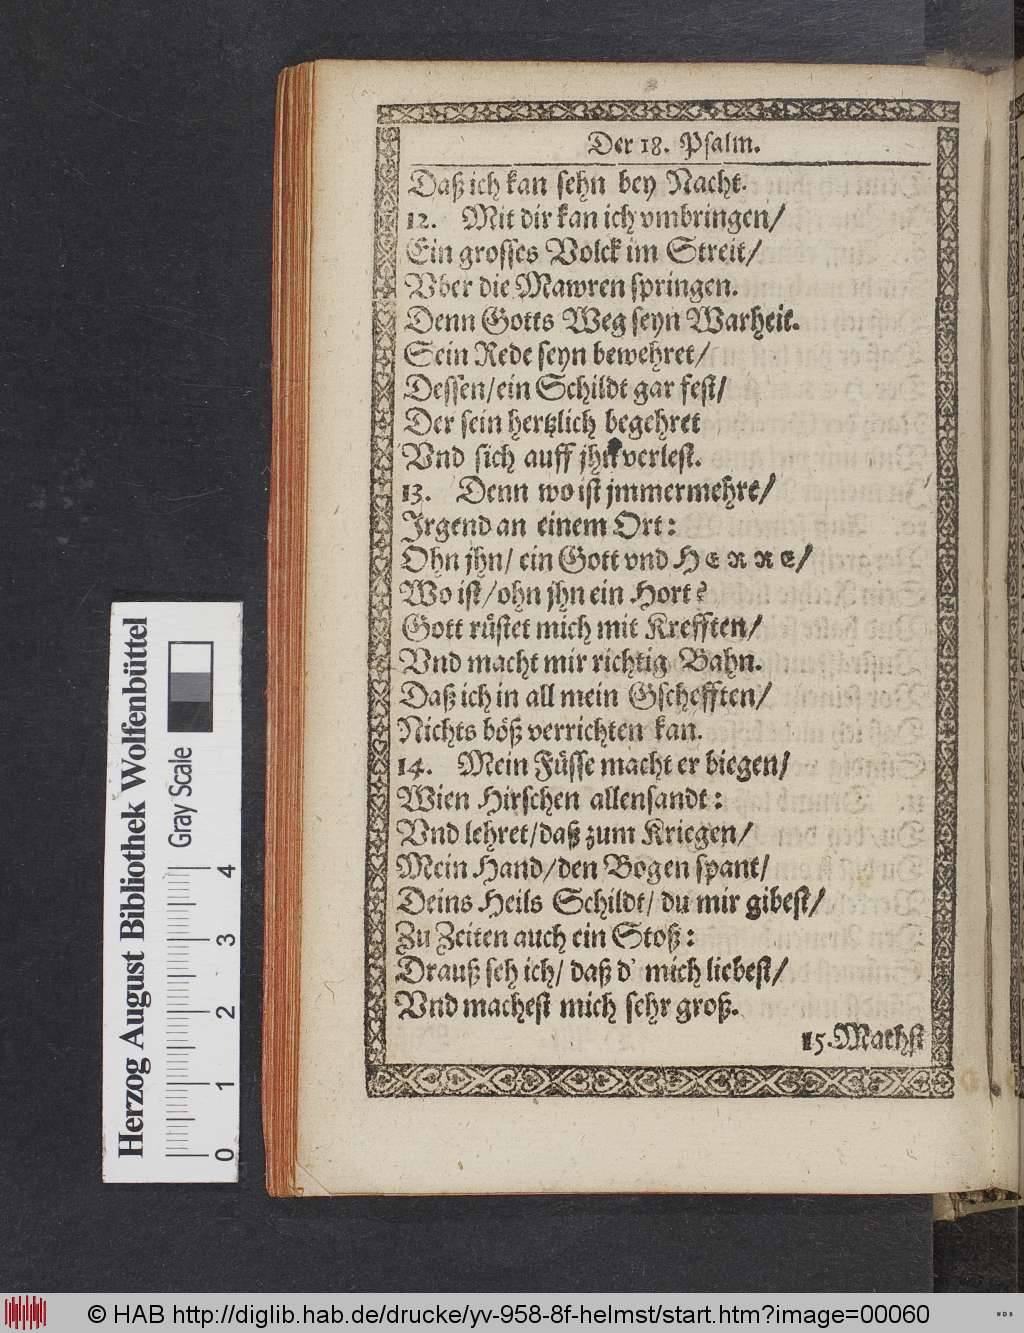 Der 18. Psalm.
Daß ich kan sehn bey Nacht.
12. Mit dir kan ich vmbringen/
Ein grosses Volck im Streit/
Vber die Mawren springen.
Denn Gotts Weg seyn Warheit.
Sein Rede seyn bewehret/
Dessen/ein Schildt gar fest/
Der sein hertzlich begehret
Vnd sich auff jhn verlest.
13. Denn wo ist jmmermehre/
Jrgend an einem Ort:
Ohn jhn/ ein Gott vnd HERRE/
Wo ist/ohn jhn ein Hort?
Gott rüstet mich mit Krefften/
Vnd macht mir richtig Bahn.
Daß ich in all mein Gschefften/
Nichts böß verrichten kan.
14. Mein Füsse macht er biegen/
Wien Hirschen allensandt:
Vnd lehret/daß zum Kriegen/
Mein Hand/den Bogen spant/
Deins Heils Schildt/ du mir gibest/
Zu Zeiten auch ein Stoß:
Drauß seh ich/ daß d' mich liebest/
Vnd machest mich sehr groß.
15. Machst
Herzog August Bibliothek Wolfenbüttel
Gray Scale
0 1 2 3 4
© HAB http://diglib.hab.de/drucke/yv-958-8f-helmst/start.htm?image=00060